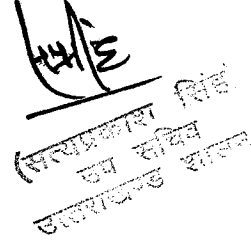 (सत्यप्रकाश सिंह
उप सचिव
उत्तराखण्ड शासन